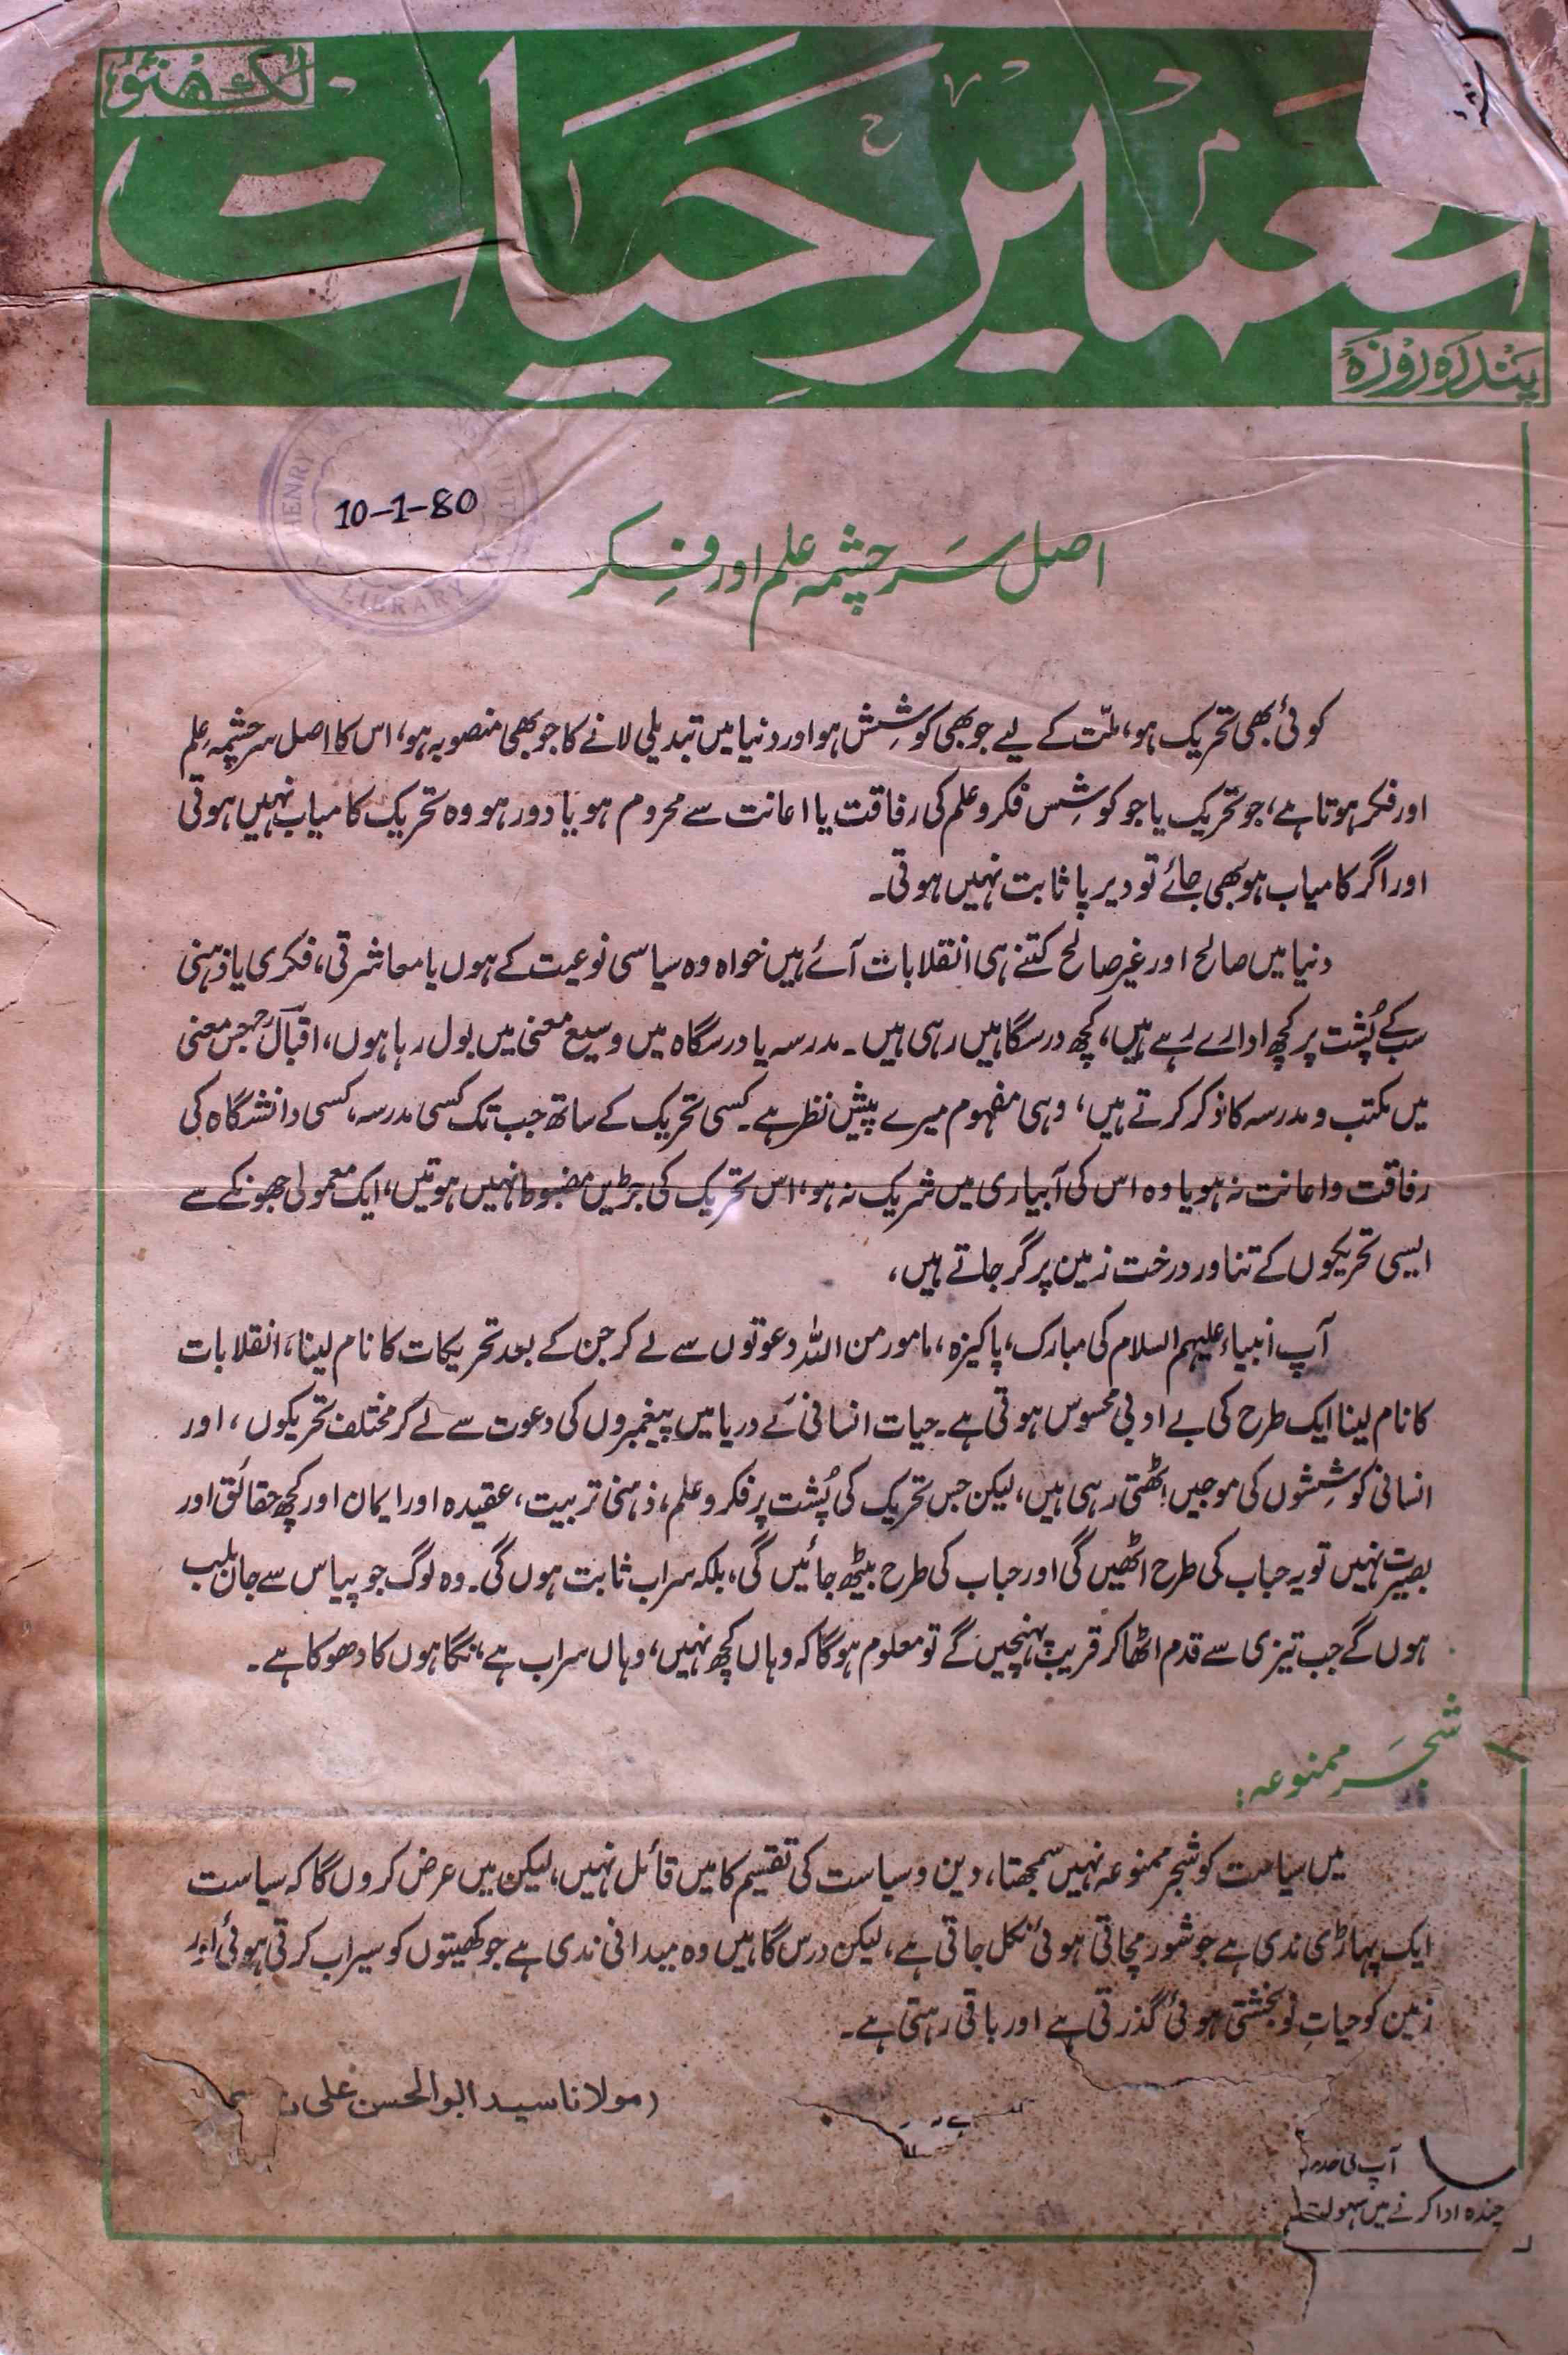 لکھنؤ
تعمیر حیات
پندرہ روزہ
HENRY
LIBRARY
10-1-80
اصل سرچشمہ علم اور فکر
کوئی بھی تحریک ہو، ملّت کے لیے جو بھی کوشِش ہو اور دنیا میں تبدیلی لانے کا جو بھی منصوبہ ہو، اس کا اصل سرچشمہ علم
اور فکر ہوتا ہے، جو تحریک یا جو کوشِس فکر و علم کی رفاقت یا اعانت سے محروم ہو یا دور ہو وہ تحریک کامیاب نہیں ہوتی
اور اگر کامیاب ہو بھی جائے تو دیرپا ثابت نہیں ہوتی۔
دنیا میں صالح اور غیر صالح کتنے ہی انقلابات آئے ہیں خواہ وہ سیاسی نوعیت کے ہوں یا معاشرتی، فکری یا ذہنی
سب کے پُشت پر کچھ ادارے رہے ہیں، کچھ درسگاہیں رہی ہیں۔ مدرسہ یا درسگاہ میں وسیع معنی میں بول رہا ہوں، اقبالؒ جس معنی
میں مکتب و مدرسہ کا ذکر کرتے ہیں، وہی مفہوم میرے پیش نظر ہے۔ کسی تحریک کے ساتھ جب تک کسی مدرسہ، کسی دانشگاہ کی
رفاقت و اعانت نہ ہو یا وہ اس کی آبیاری میں شریک نہ ہو، اس تحریک کی جڑیں مضبوط نہیں ہوتیں، ایک معمولی جھونکے سے
ایسی تحریکوں کے تناور درخت زمین پر گر جاتے ہیں،
آپ انبیاء علیہم السلام کی مبارک، پاکیزہ، مامور من اللہ دعوتوں سے لے کر جن کے بعد تحریکات کا نام لینا، انقلابات
کا نام لینا ایک طرح کی بے ادبی محسوس ہوتی ہے۔ حیات انسانی کے دریا میں پیغمبروں کی دعوت سے لے کر مختلف تحریکوں، اور
انسانی کوشِشوں کی موجیں اٹھتی رہی ہیں، لیکن جس تحریک کی پُشت پر فکر و علم، ذہنی تربیت، عقیدہ اور ایمان اور کچھ حقائق اور
بصیرت نہیں تو یہ حباب کی طرح اٹھیں گی اور حباب کی طرح بیٹھ جائیں گی، بلکہ سراب ثابت ہوں گی۔ وہ لوگ جو پیاس سے جاں بلب
ہوں گے جب تیزی سے قدم اٹھا کر قریب پہنچیں گے تو معلوم ہوگا کہ وہاں کچھ نہیں، وہاں سراب ہے، نگاہوں کا دھوکا ہے۔
شجر ممنوعہ:
میں سیاست کو شجر ممنوعہ نہیں سمجھتا، دین و سیاست کی تقسیم کا میں قائل نہیں، لیکن میں عرض کروں گا کہ سیاست
ایک پہاڑی ندی ہے جو شور مچاتی ہوئی نکل جاتی ہے، لیکن درس گاہیں وہ میدانی ندی ہے جو کھیتوں کو سیراب کرتی ہوئی اور
زمین کو حیاتِ نو بخشتی ہوئی گذرتی ہے اور باقی رہتی ہے۔
(مولانا سید ابوالحسن علی
آپ کی
چندہ ادا کرنے میں سہولت